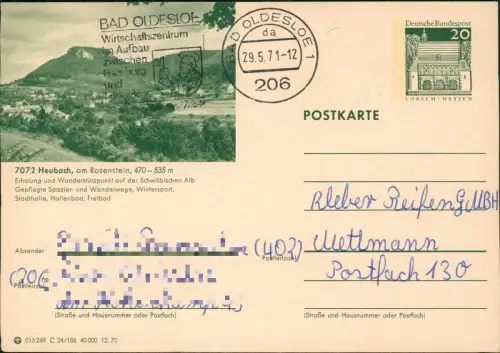 BAD OLDESLOE
Wirtschaftszentrum
im Aufbau
zwischen
Hamburg
und
BAD OLDESLOE 1
da
29.5.71-12
206
Deutsche Bundespost
20
LORSCH · HESSEN
POSTKARTE
7072 Heubach, am Rosenstein, 470–535 m
Erholung und Wanderstützpunkt auf der Schwäbischen Alb
Gepflegte Spazier- und Wanderwege, Wintersport,
Stadthalle, Hallenbad, Freibad
Kleber Reifen GMBH
Absender
Postleitzahl
(402) Mettmann
Postfach 130
(206
Postleitzahl
(Straße und Hausnummer oder Postfach)
(Straße und Hausnummer oder Postfach)
015249 C 24/186 40 000 12. 70